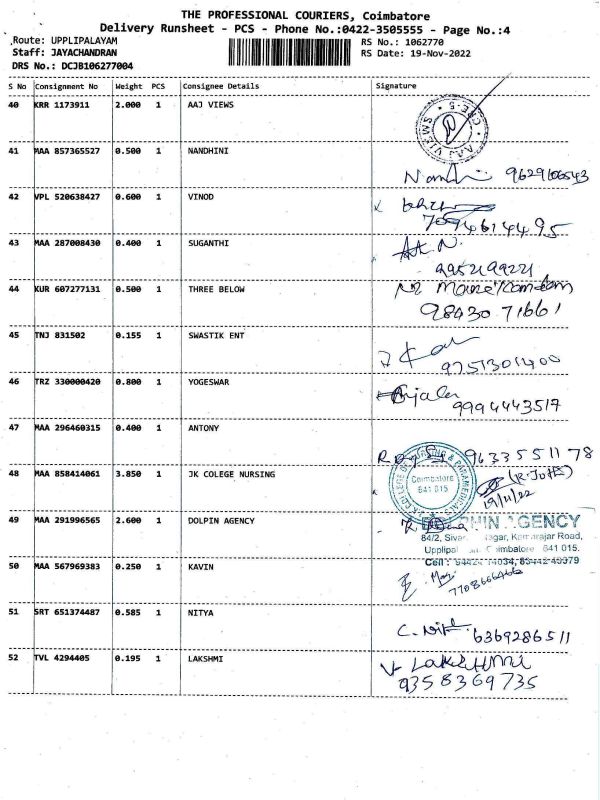 THE PROFESSIONAL COURIERS, Coimbatore
Delivery Runsheet - PCS - Phone No.:0422-3505555 - Page No.:4
Route: UPPLIPALAYAM RS No.: 1062770
Staff: JAYACHANDRAN RS Date: 19-Nov-2022
DRS No.: DCJB106277004
S No Consignment No Weight PCS Consignee Details Signature
40 KRR 1173911 2.000 1 AAJ VIEWS
41 MAA 857365527 0.500 1 NANDHINI
9629106543
42 VPL 520638427 0.600 1 VINOD
7094614495
43 MAA 287008430 0.400 1 SUGANTHI
9952199221
44 KUR 607277131 0.500 1 THREE BELOW
98430 71661
45 TNJ 831502 0.155 1 SWASTIK ENT
9751301400
46 TRZ 330000420 0.800 1 YOGESWAR
9994443517
47 MAA 296460315 0.400 1 ANTONY
9633551178
48 MAA 858414061 3.850 1 JK COLEGE NURSING
Coimbatore
641 015
19/11/22
49 MAA 291996565 2.600 1 DOLPIN AGENCY
AGENCY
84/2, Road,
Upplipal 641 015.
Cell :
50 MAA 567969383 0.250 1 KAVIN
51 SRT 651374487 0.585 1 NITYA
6369286511
52 TVL 4294405 0.195 1 LAKSHMI
9358369735